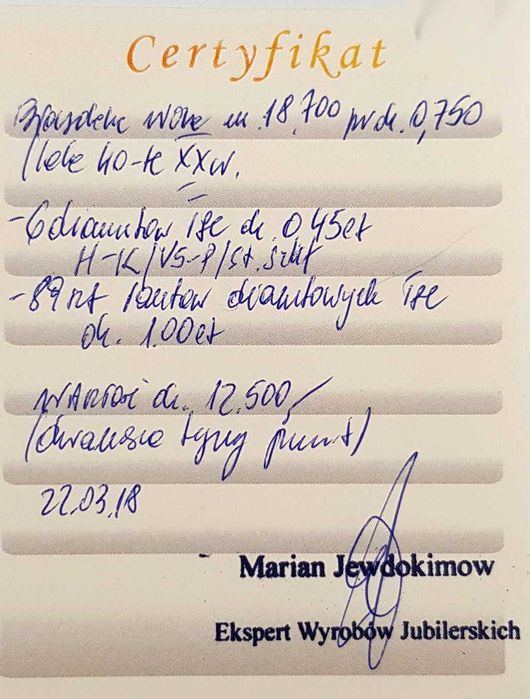 Certyfikat
m. 18,700 pr. ok. 0,750
/lata 40-te XXw.
- 6 diamentów łże ok. 0,45ct
H-K/VS-P/st. szlif
- 89 szt rautów diamentowych łże
ok. 1.00ct
WARTOŚĆ ok. 12.500,-
(dwanaście tysięcy pięćset)
22.03.18
Marian Jewdokimow
Ekspert Wyrobów Jubilerskich